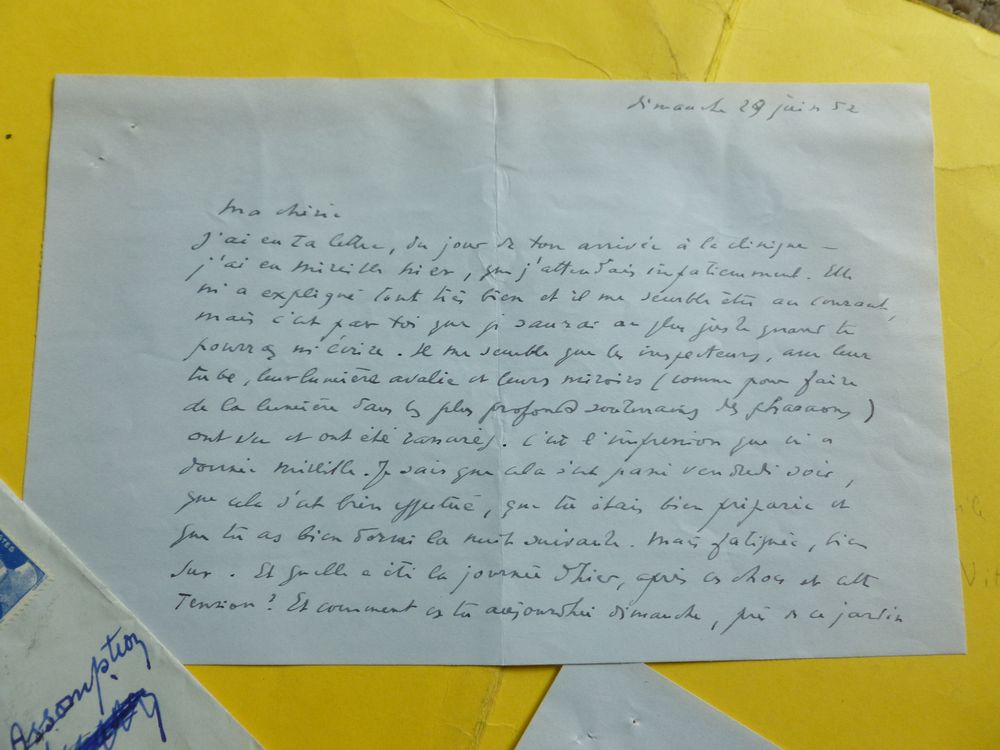 dimanche 29 juin 52
Ma chérie
J'ai eu ta lettre, du jour de ton arrivée à la clinique –
j'ai eu Mireille hier, que j'attendais impatiemment. Elle
m'a expliqué tout très bien et il me semble être au courant,
mais c'est par toi que je saurai au plus juste quand tu
pourras m'écrire. Il me semble que les inspecteurs, avec leur
tube, leur lumière avalée et leurs miroirs (comme pour faire
de la lumière dans les plus profonds souterrains des pharaons)
ont vu et ont été rassurés. C'est l'impression que m'a
donnée Mireille. Je sais que cela s'est passé vendredi soir,
que cela s'est bien effectué, que tu étais bien préparée et
que tu as bien dormi la nuit suivante. Mais fatiguée, bien
sur. Et quelle a été la journée d'hier, après ce choc et cette
Tension? Et comment es tu aujourdhui dimanche, près de ce jardin
Assomption